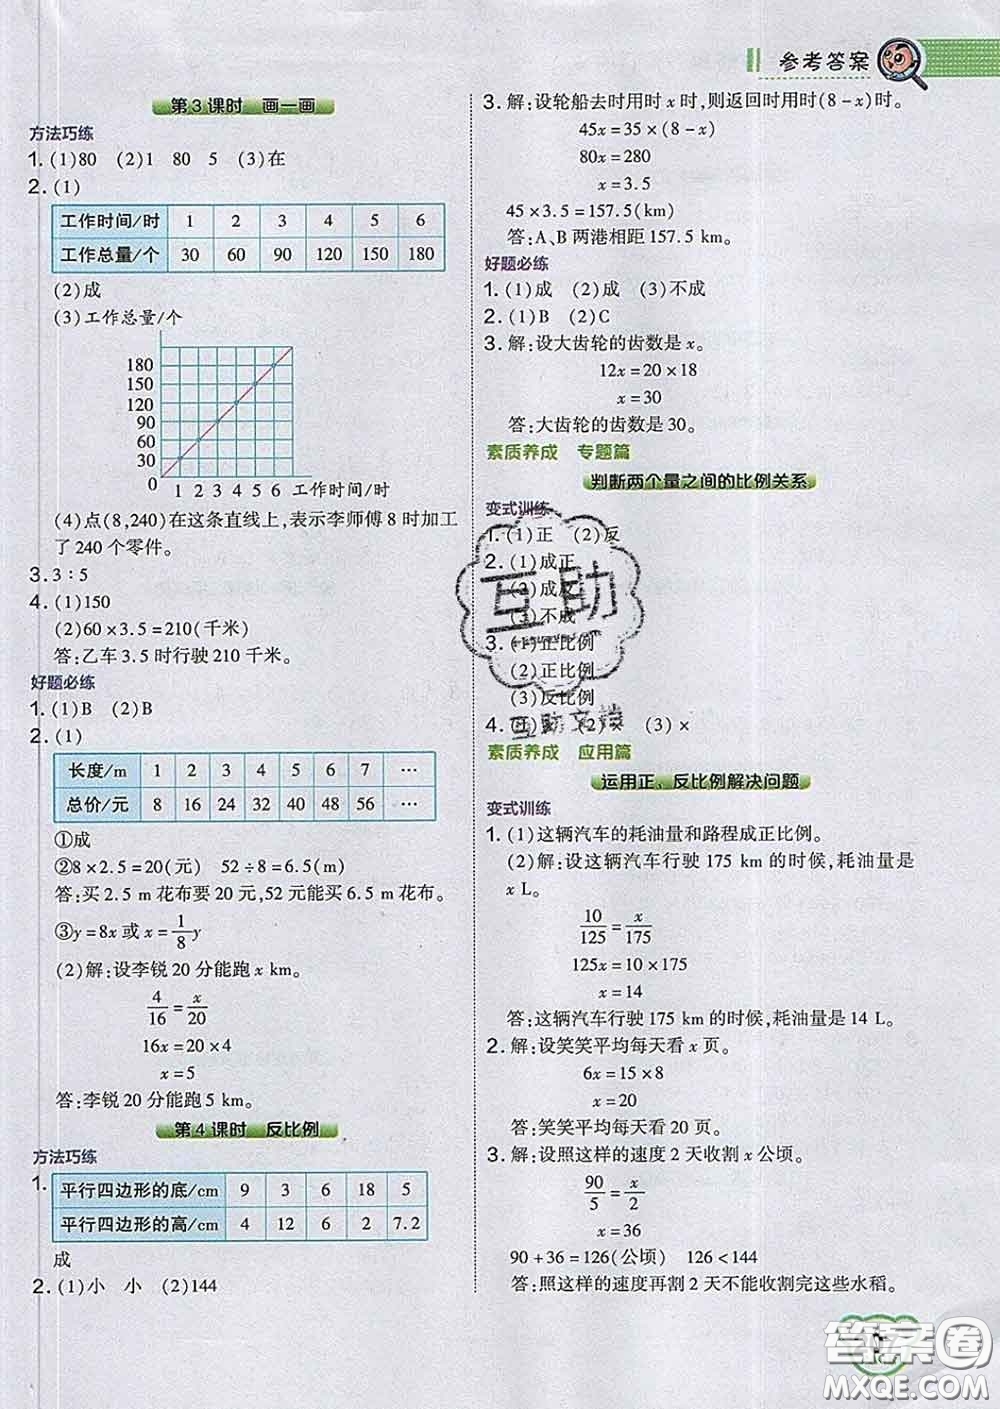 参考答案
第3课时 画一画
方法巧练
1. (1)80 (2)1 80 5 (3)在
2. (1)
工作时间/时 1 2 3 4 5 6
工作总量/个 30 60 90 120 150 180
(2)成
(3)工作总量/个
180
150
120
90
60
30
0 1 2 3 4 5 6 工作时间/时
(4)点(8,240)在这条直线上,表示李师傅8时加工
了240个零件。
3. 3:5
4. (1)150
(2)60×3.5=210(千米)
答:乙车3.5时行驶210千米。
好题必练
1. (1)B (2)B
2. (1)
长度/m 1 2 3 4 5 6 7 …
总价/元 8 16 24 32 40 48 56 …
①成
②8×2.5=20(元) 52÷8=6.5(m)
答:买2.5 m花布要20元,52元能买6.5 m花布。
③y=8x或x=1/8y
(2)解:设李锐20分能跑x km。
4/16=x/20
16x=20×4
x=5
答:李锐20分能跑5 km。
第4课时 反比例
方法巧练
1.
平行四边形的底/cm 9 3 6 18 5
平行四边形的高/cm 4 12 6 2 7.2
成
2. (1)小 小 (2)144
3. 解:设轮船去时用时x时,则返回时用时(8-x)时。
45x=35×(8-x)
80x=280
x=3.5
45×3.5=157.5(km)
答:A、B两港相距157.5 km。
好题必练
1. (1)成 (2)成 (3)不成
2. (1)B (2)C
3. 解:设大齿轮的齿数是x。
12x=20×18
x=30
答:大齿轮的齿数是30。
素质养成 专题篇
判断两个量之间的比例关系
变式训练
1. (1)正 (2)反
2. (1)成正
(2)成反
(3)不成
3. (1)正比例
(2)正比例
(3)反比例
4. (2)× (3)×
素质养成 应用篇
运用正、反比例解决问题
变式训练
1. (1)这辆汽车的耗油量和路程成正比例。
(2)解:设这辆汽车行驶175 km的时候,耗油量是
x L。
10/125=x/175
125x=10×175
x=14
答:这辆汽车行驶175 km的时候,耗油量是14 L。
2. 解:设笑笑平均每天看x页。
6x=15×8
x=20
答:笑笑平均每天看20页。
3. 解:设照这样的速度2天收割x公顷。
90/5=x/2
x=36
90+36=126(公顷) 126<144
答:照这样的速度再割2天不能收割完这些水稻。
互助
互助文档
答案圈
MXQE.COM